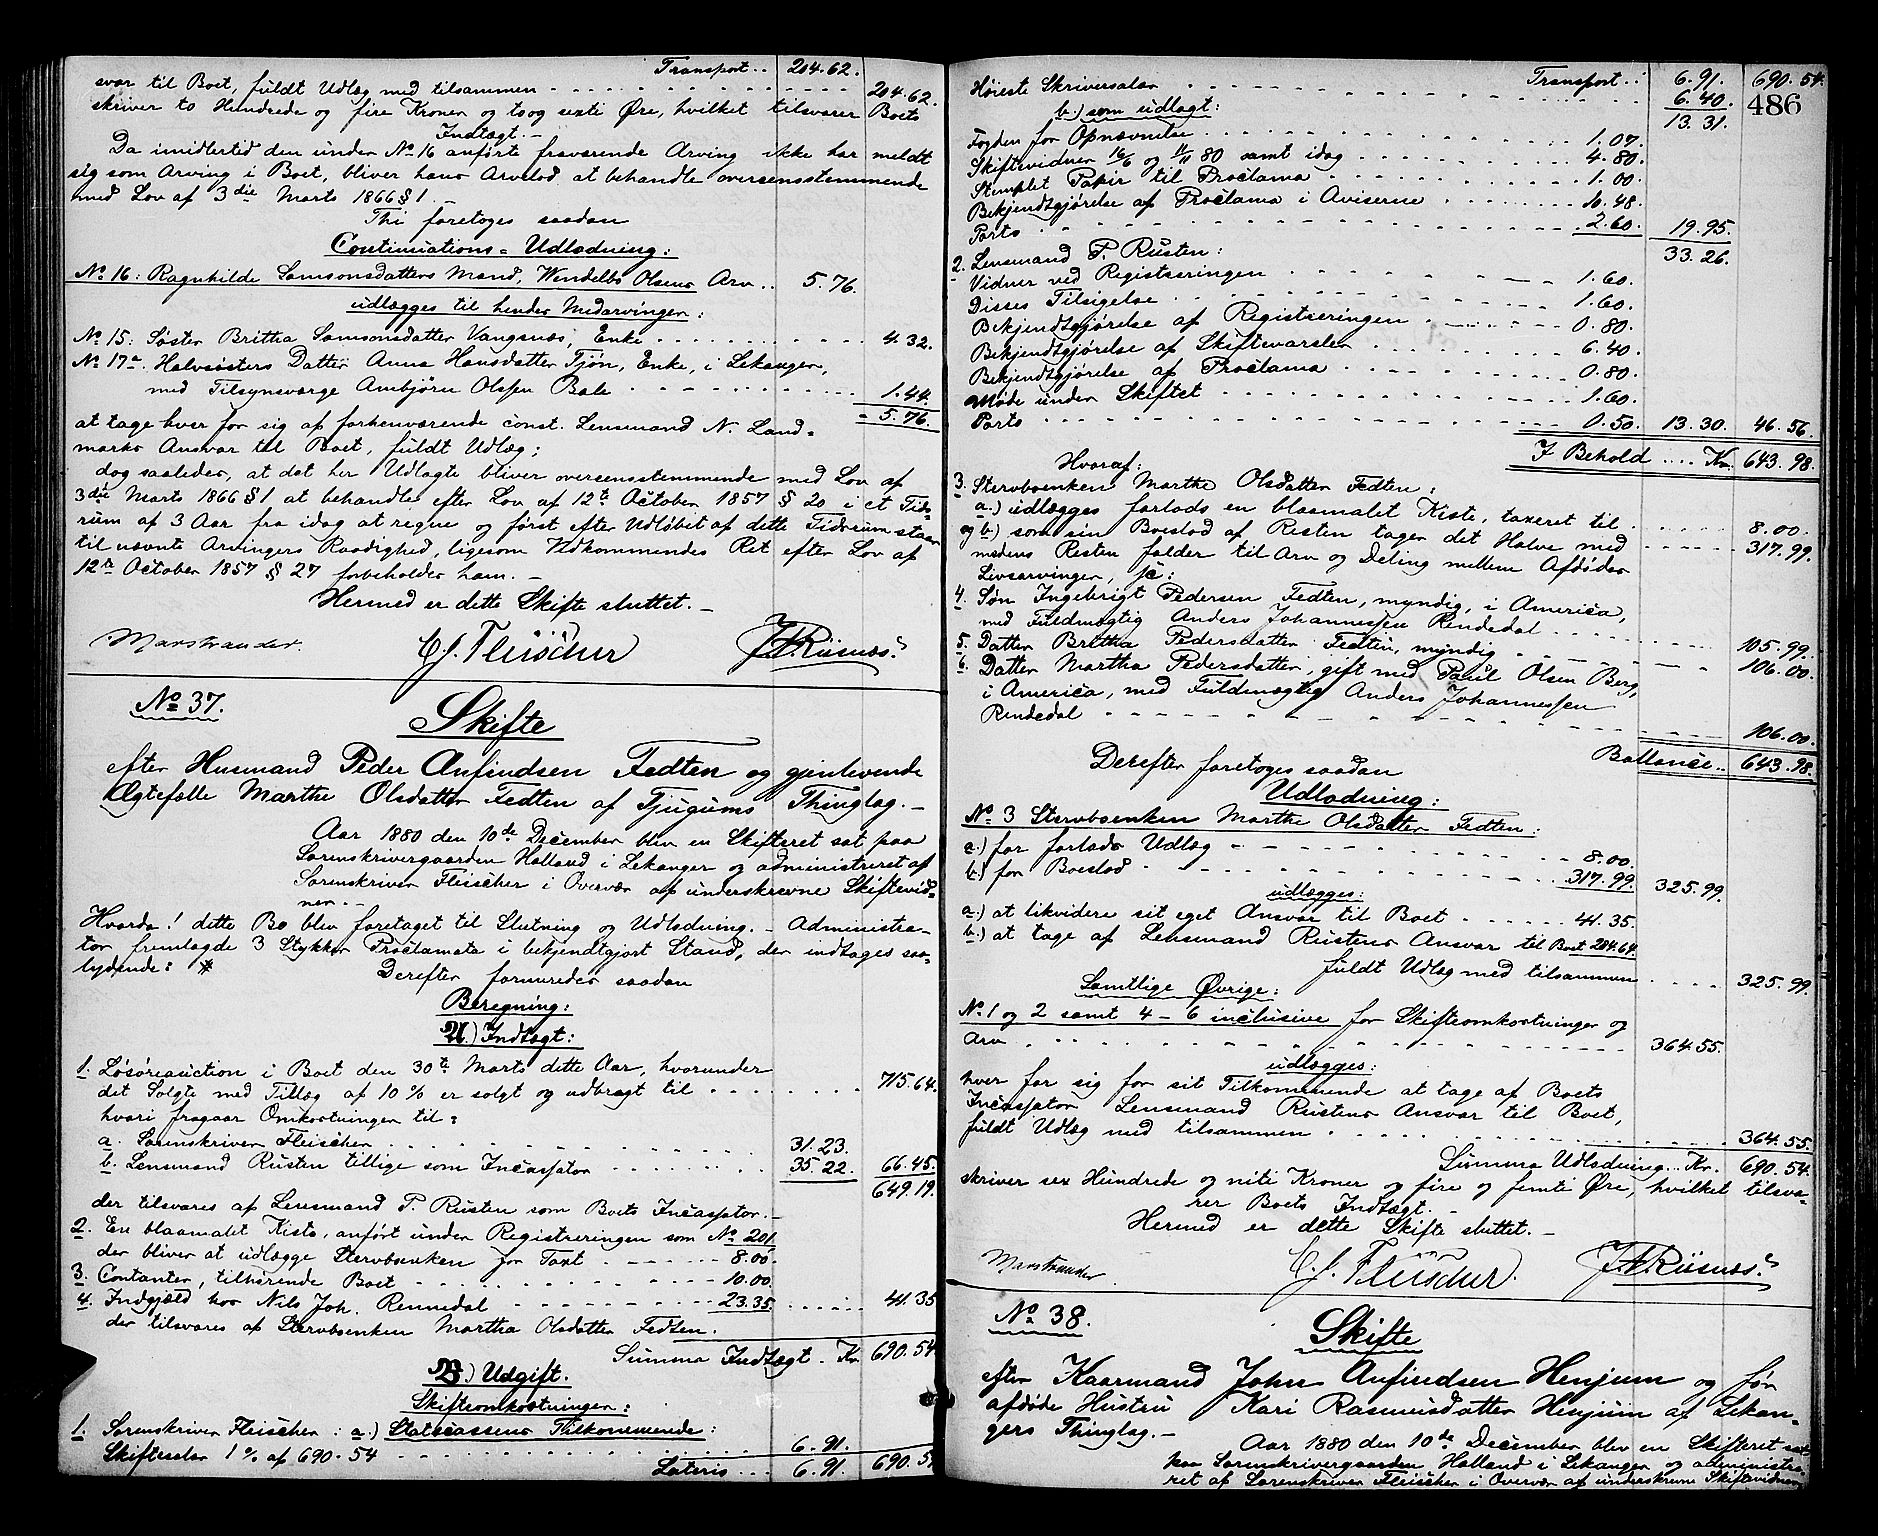 Transport.. 204.62.
svar til Boet, fuldt Udlæg med tilsammen 204.62.
skriver to Hundrede og fire Kroner og to og sexti Øre, hvilket tilsvarer Boets
Indtægt.
Da imidlertid den under No 16 anførte fraværende Arving ikke har meldt
sig som Arving i Boet, bliver hans Arvelod at behandle overensstemmende
med Lov af 3die Marts 1866 § 1.
Thi foretoges saadan
Continuations-Udlodning:
No 16: Ragnhilde Samsonsdatters Mand, Wendelbo Olsens Arv.. 5.76.
udlægges til hendes Medarvinger:
No 15: Søster Brittha Samsonsdatter Vangsnæs, Enke 4.32.
No 17a. Halvsøsters Datter Anna Hansdatter Tjøn, Enke, i Lekanger,
med Tilsynsværge Ambjørn Olsen Bale 1.44.
at tage hver for sig af forhenværende const. Lensmand N. Land- = 5.76.
marks Ansvar til Boet, fuldt Udlæg;
dog saaledes, at det her Udlagte bliver overensstemmende med Lov af
3die Marts 1866 § 1 at behandle efter Lov af 12te October 1857 § 20 i et Tids-
rum af 3 Aar fra idag at regne og først efter Udløbet af dette Tidsrum staar
til nævnte Arvingers Raadighed, ligesom Vedkommendes Ret efter Lov af
12te October 1857 § 27 forbeholdes ham.
Hermed er dette Skifte sluttet.
Marstrander. C. J. Fleischer J. A. Riisnæs.
No 37.
Skifte
efter Husmand Peder Anfindsen Fedten og gjenlevende
Ægtefælle Marthe Olsdatter Fedten af Tjugums Thinglag.
Aar 1880 den 10de December blev en Skifteret sat paa
Sorenskrivergaarden Holland i Lekanger og administreret af
Sorenskriver Fleischer i Overvær af underskrevne Skiftevid-
ner.
Hvorda! dette Bo blev foretaget til Slutning og Udlodning. - Administra-
tor fremlagde 3 Stykker Proclamata i bekjendtgjort Stand, der indtages saa-
lydende: #
Derefter formeredes saadan
Beregning:
A) Indtægt:
1. Løsøreauction i Boet den 30te Marts dette Aar, hvorunder
det Solgte med Tillæg af 10 % er solgt og udbragt til 715.64.
hvori fragaar Omkostninger til:
a. Sorenskriver Fleischer 31.23.
b. Lensmand Rusten tillige som Incassator 35.22. 66.45.
649.19.
der tilsvares af Lensmand P. Rusten som Boets Incassator.
2. En blaamalet Kiste, anført under Registreringen som No 201
der bliver at udlægge Stervboenken for Taxt 8.00.
3. Contanter, tilhørende Boet 10.00.
4. Indgjæld hos Nils Joh. Rennedal 23.35. 41.35
der tilsvares af Stervboenken Martha Olsdatter Fedten.
Summa Indtægt. Kr. 690.54
B) Udgift.
Skifteomkostninger:
1. Sorenskriver Fleischer: a.) Statscassens Tilkommende:
Skiftesalar 1 % af 690.54 6.91.
Lateris... 6.91. 690.54
486
Transport.. 6.91. 690.54.
Høieste Skriversalær 6.40.
b.) som udlagt: 13.31.
Fogden for Opnævnelse 1.07.
Skiftevidner 16/6 og 11/11 80 samt idag 4.80.
Stemplet Papir til Proclama 1.00.
Bekjendtgjørelse af Proclama i Aviserne 10.48.
Porto 2.60. 19.95.
2. Lensmand P. Rusten: 33.26.
Vidner ved Registreringen 1.60.
Disses Tilsigelse 1.60.
Bekjendtgjørelse af Registreringen 0.80.
Bekjendtgjørelse af Skiftevarsler 6.40.
Bekjendtgjørelse af Proclama 0.80.
Møde under Skiftet 1.60.
Porto 0.50. 13.30. 46.56.
I Behold .... Kr. 643.98.
Hvoraf:
3. Stervboenken Marthe Olsdatter Fedten:
a.) udlægges forlods en blaamalet Kiste, taxeret til 8.00.
og b.) som sin Boeslod af Resten tager det Halve med 317.99.
medens Resten falder til Arv og Deling mellem Afdødes
Livsarvinger, se:
4. Søn Ingebrigt Pedersen Fedten, myndig, i America,
med Fuldmægtig Anders Johannessen Rendedal 105.99.
5. Datter Brittha Pedersdatter Fedten, myndig 106.00.
6. Datter Martha Pedersdatter, gift med Paul Olsen Berg,
i America, med Fuldmægtig Anders Johannessen
Rendedal 106.00.
Ballance.. 643.98.
Derefter foretoges saadan
Udlodning:
No 3 Stervboenken Marthe Olsdatter Fedten:
a.) for forlods Udlæg 8.00.
b.) for Boeslod 317.99. 325.99.
udlægges:
a.) at likvidere sit eget Ansvar til Boet 41.35.
b.) at tage af Lensmand Rustens Ansvar til Boet 284.64.
fuldt Udlæg med tilsammen 325.99.
Samtlige Øvrige:
No. 1 og 2 samt 4 - 6 inclusive for Skifteomkostninger og
Arv 364.55.
udlægges:
hver for sig for sit Tilkommende at tage af Boets
Incassator Lensmand Rustens Ansvar til Boet,
fuldt Udlæg med tilsammen 364.55.
Summa Udlodning... Kr. 690.54.
skriver sex Hundrede og niti Kroner og fire og femti Øre, hvilket tilsva-
rer Boets Indtægt.
Hermed er dette Skifte sluttet.
Marstrander C. J. Fleischer. J. A. Riisnæs.
No 38.
Skifte
efter Kaarmand John Anfindsen Henjum og før
afdøde Hustru Kari Rasmusdatter Henjum af Lekan-
gers Thinglag.
Aar 1880 den 10de December blev en Skifteret sat
paa Sorenskrivergaarden Holland i Lekanger og administre-
ret af Sorenskriver Fleischer i Overvær af underskrevne Skiftevidner